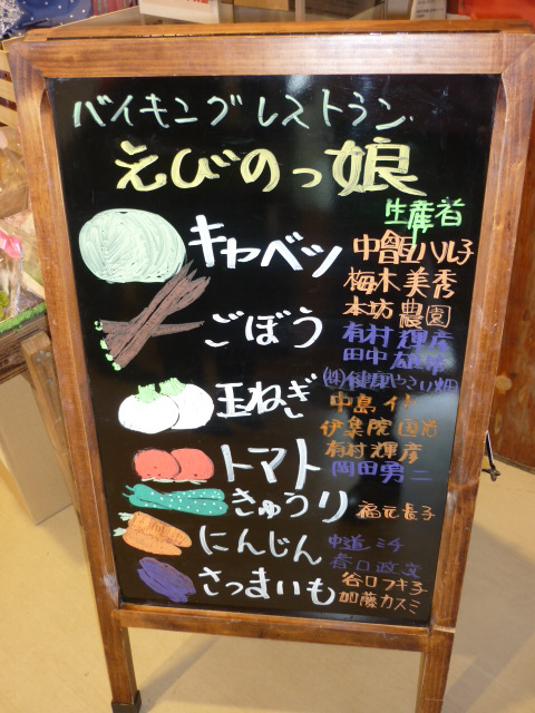 バイキングレストラン
えびのっ娘
生産者
キャベツ
中曽ハル子
梅木美秀
本坊農園
ごぼう
有村輝彦
田中雄
㈱健康やさい畑
玉ねぎ
中島
伊集院国治
トマト
有村輝彦
岡田勇二
きゅうり
福元長子
にんじん
中道ミチ
春口政文
さつまいも
谷口フキ子
加藤カスミ